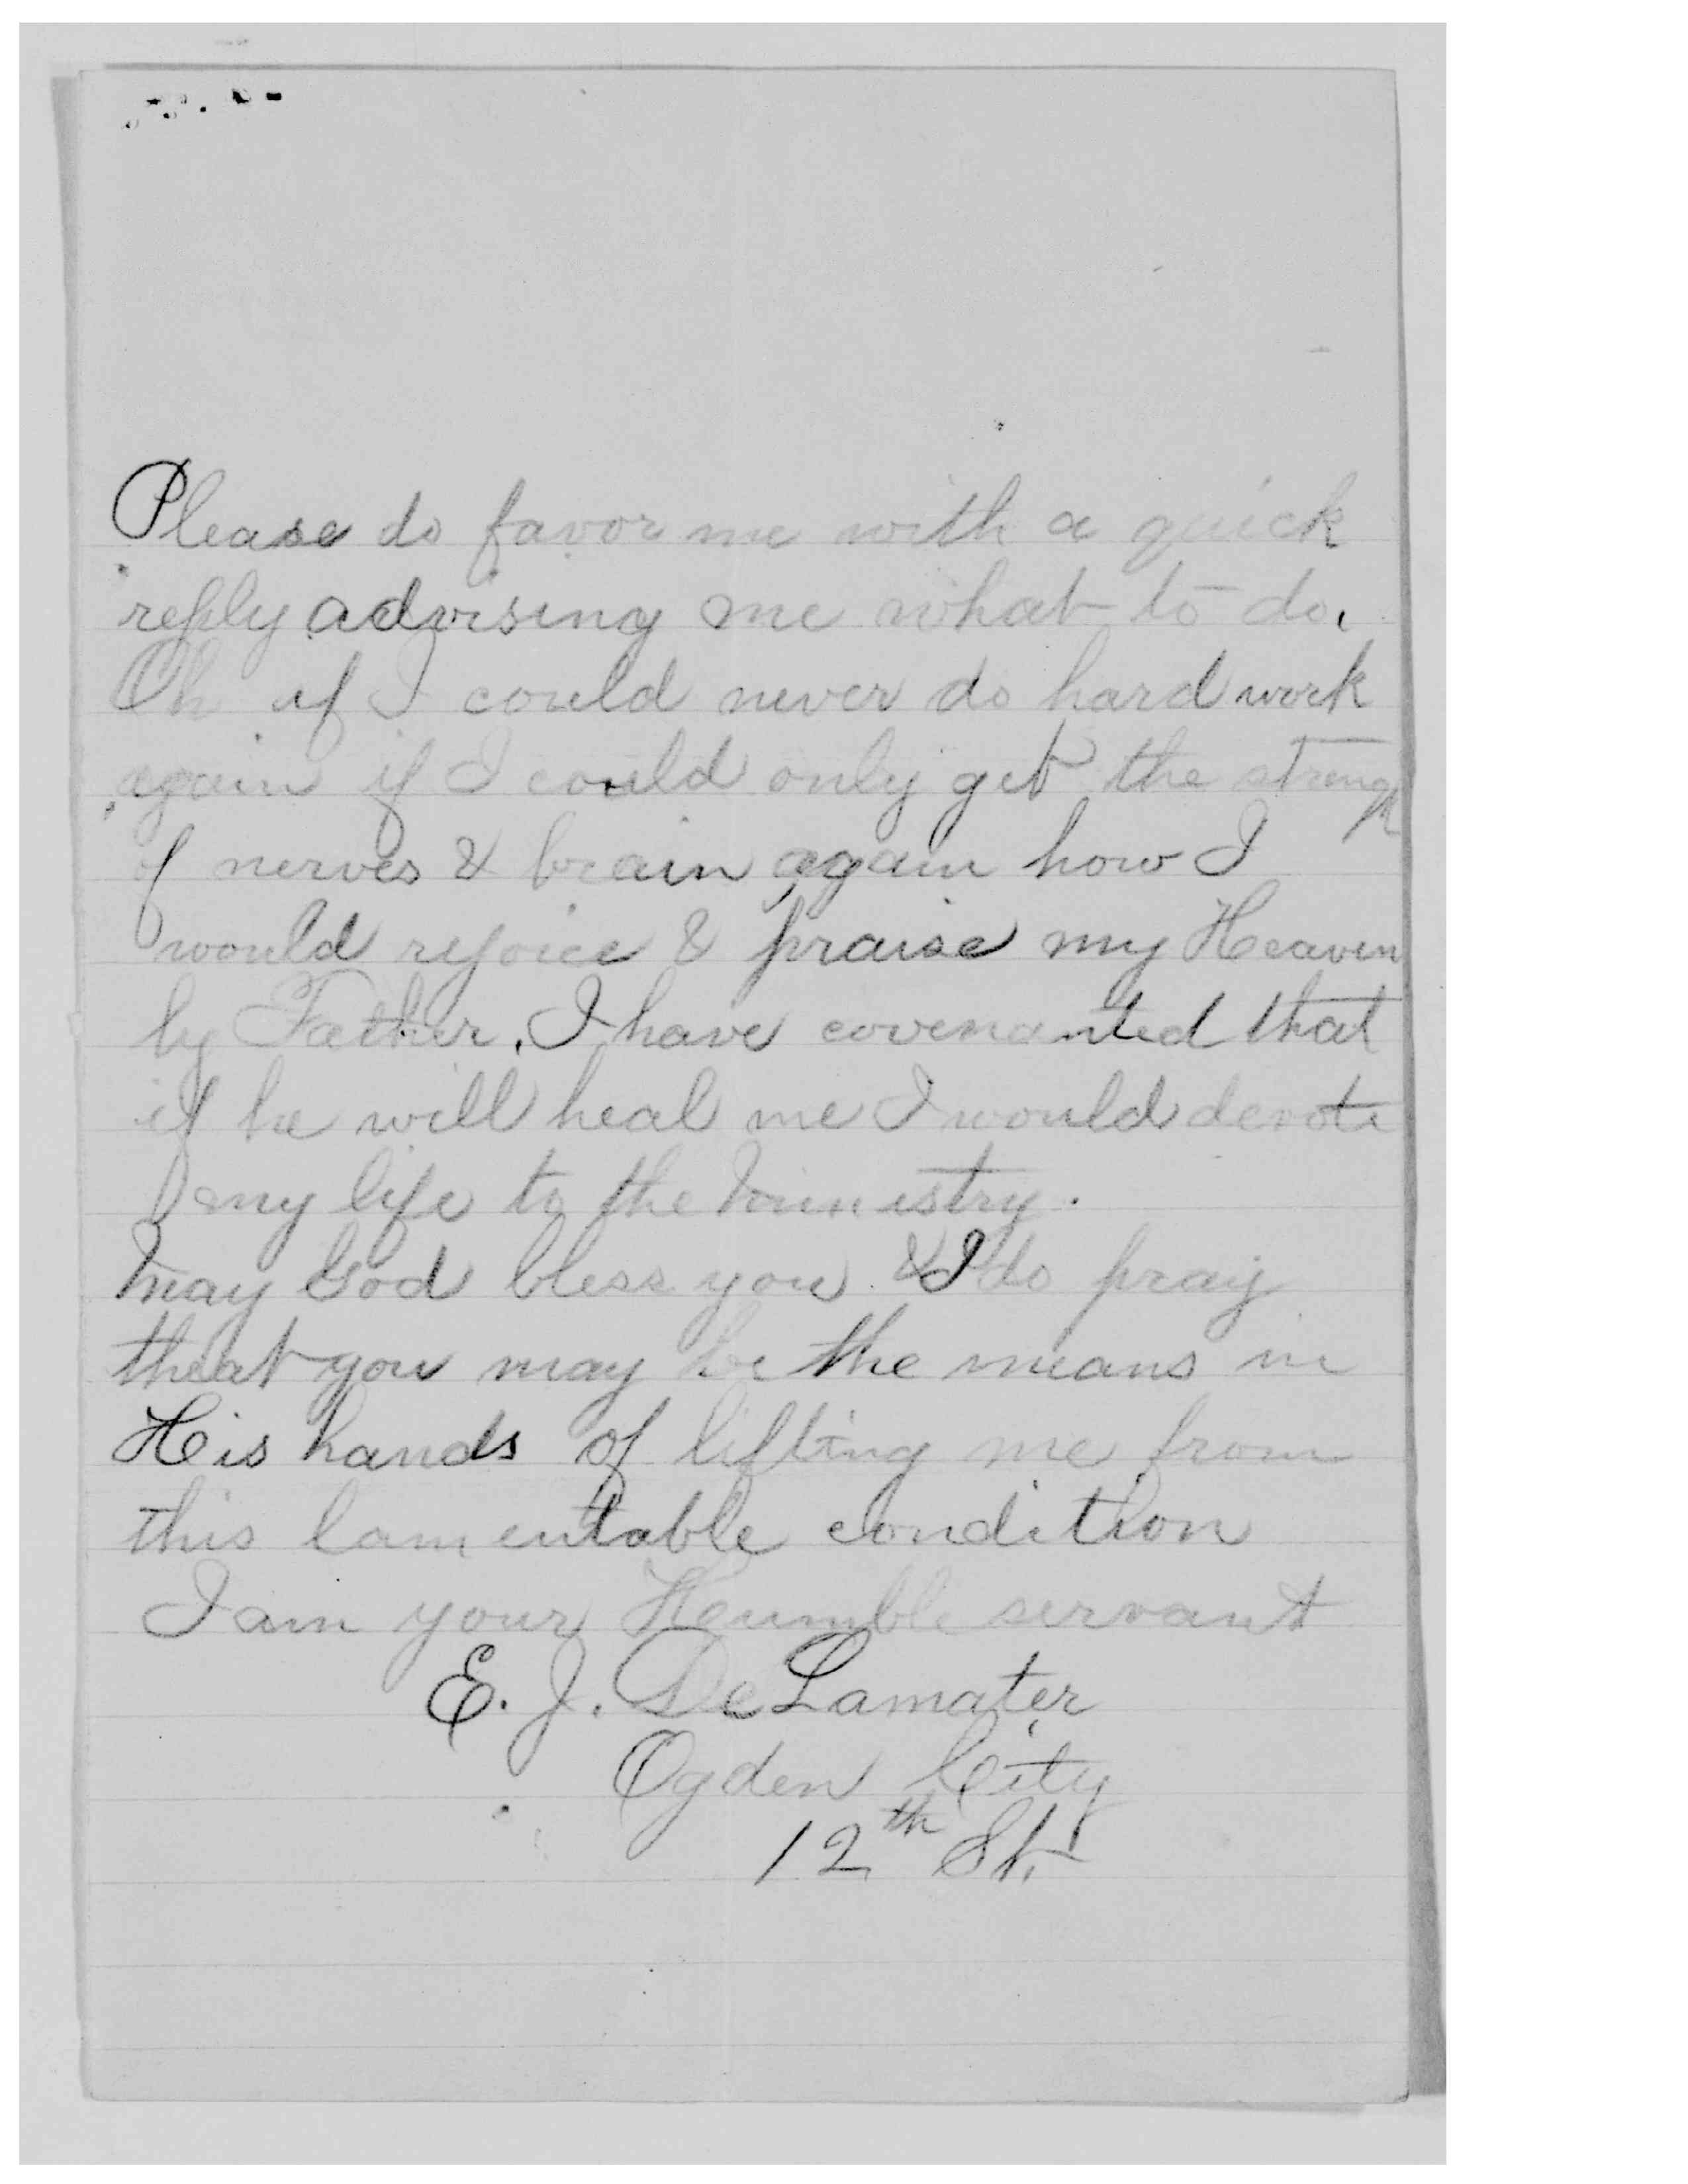 Please do favor me with a quick
reply advising me what to do.
Oh if I could never do hard work
again if I could only get the strength
of nerves & brain again how I
would rejoice & praise my Heaven
ly Father. I have covenanted that
if he will heal me I would devote
my life to the ministry.
May God bless you & I do pray
that you may be the means in
His hands of lifting me from
this lamentable condition
I am your Heumble servant
E. J. DeLamater
Ogden City
12th St.